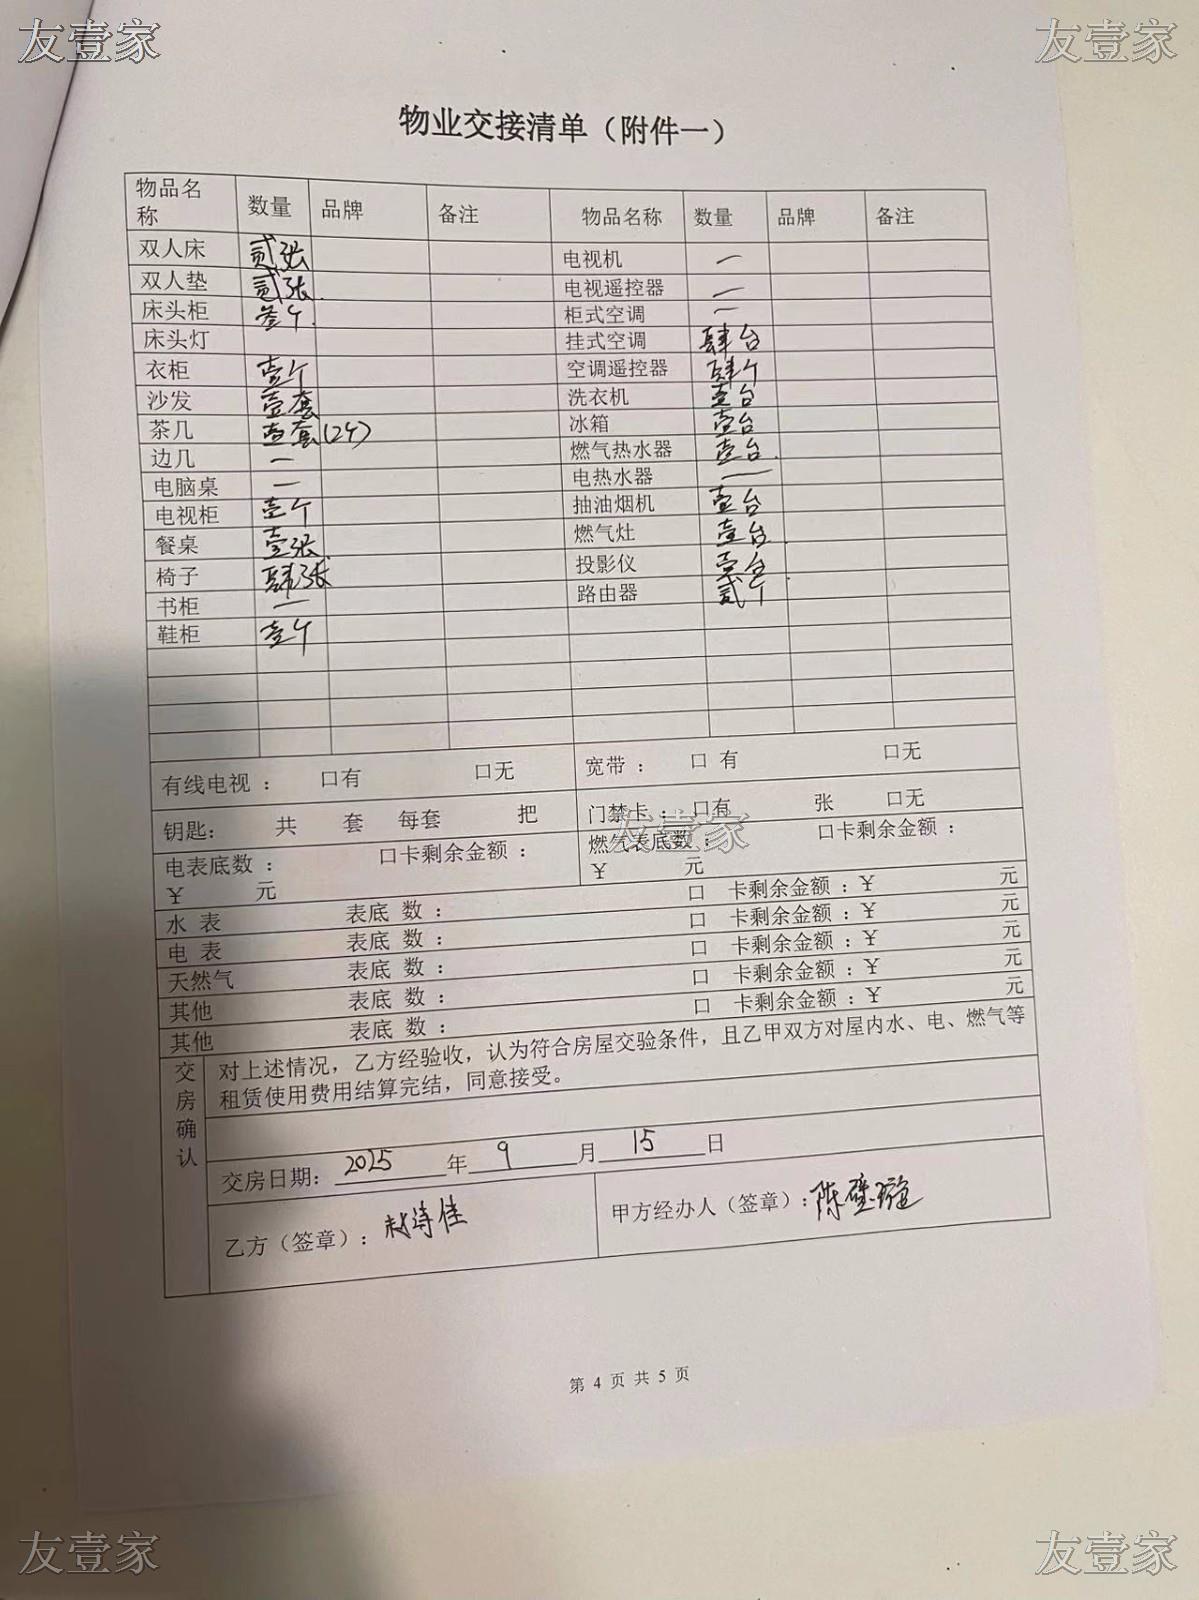 友壹家 友壹家
物业交接清单（附件一）
物品名称 数量 品牌 备注 物品名称 数量 品牌 备注
双人床 贰张 电视机 一
双人垫 贰张. 电视遥控器 一
床头柜 叁个. 柜式空调 一
床头灯 挂式空调 肆台
衣柜 壹个 空调遥控器 肆个
沙发 壹套 洗衣机 壹台
茶几 壹套(2个) 冰箱 壹台
边几 一 燃气热水器 壹台.
电脑桌 一 电热水器 一
电视柜 壹个 抽油烟机 壹台
餐桌 壹张. 燃气灶 壹台.
椅子 肆张 投影仪 壹台.
书柜 一 路由器 贰个
鞋柜 壹个
有线电视： 口有 口无 宽带： 口 有 口无
钥匙： 共 套 每套 把 门禁卡： 口有 张 口无
友壹家
电表底数： 口卡剩余金额： 燃气表底数： 口卡剩余金额：
¥ 元 ¥ 元
水 表 表底 数： 口 卡剩余金额：¥ 元
电 表 表底 数： 口 卡剩余金额：¥ 元
天然气 表底 数： 口 卡剩余金额：¥ 元
其他 表底 数： 口 卡剩余金额：¥ 元
其他 表底 数： 口 卡剩余金额：¥ 元
交房确认 对上述情况，乙方经验收，认为符合房屋交验条件，且乙甲双方对屋内水、电、燃气等
租赁使用费用结算完结，同意接受。
交房日期：2025年9月15日
乙方（签章）： 甲方经办人（签章）：陈璧璇
第 4 页 共 5 页
友壹家 友壹家